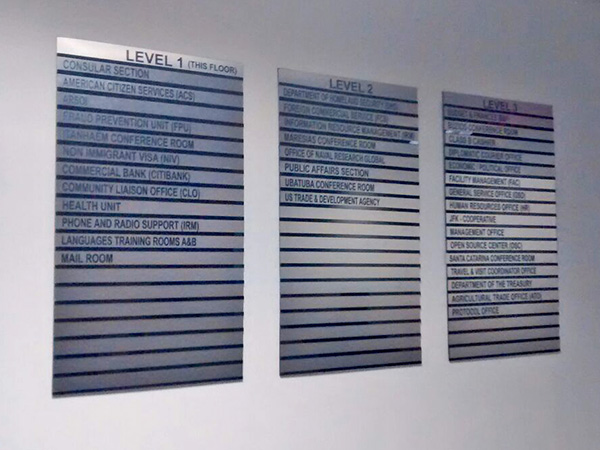 LEVEL 1 (THIS FLOOR)
CONSULAR SECTION
AMERICAN CITIZEN SERVICES (ACS)
ARSOI
FRAUD PREVENTION UNIT (FPU)
ITANHAEM CONFERENCE ROOM
NON IMMIGRANT VISA (NIV)
COMMERCIAL BANK (CITIBANK)
COMMUNITY LIAISON OFFICE (CLO)
HEALTH UNIT
PHONE AND RADIO SUPPORT (IRM)
LANGUAGES TRAINING ROOMS A&B
MAIL ROOM
LEVEL 2
DEPARTMENT OF HOMELAND SECURITY (DHS)
FOREIGN COMMERCIAL SERVICE (FCS)
INFORMATION RESOURCE MANAGEMENT (IRM)
MARESIAS CONFERENCE ROOM
OFFICE OF NAVAL RESEARCH GLOBAL
PUBLIC AFFAIRS SECTION
UBATUBA CONFERENCE ROOM
US TRADE & DEVELOPMENT AGENCY
LEVEL 3
BUDGET & FINANCES
CONFERENCE ROOM
CLASS B CASHIER
DIPLOMATIC COURIER OFFICE
ECONOMIC / POLITICAL SECTION
FACILITY MANAGEMENT (FAC)
GENERAL SERVICE OFFICE (GSO)
HUMAN RESOURCES OFFICE (HR)
JFK - COOPERATIVE
MANAGEMENT OFFICE
OPEN SOURCE CENTER (OSC)
SANTA CATARINA CONFERENCE ROOM
TRAVEL & VISIT COORDINATOR OFFICE
DEPARTMENT OF THE TREASURY
AGRICULTURAL TRADE OFFICE (ATO)
PROTOCOL OFFICE